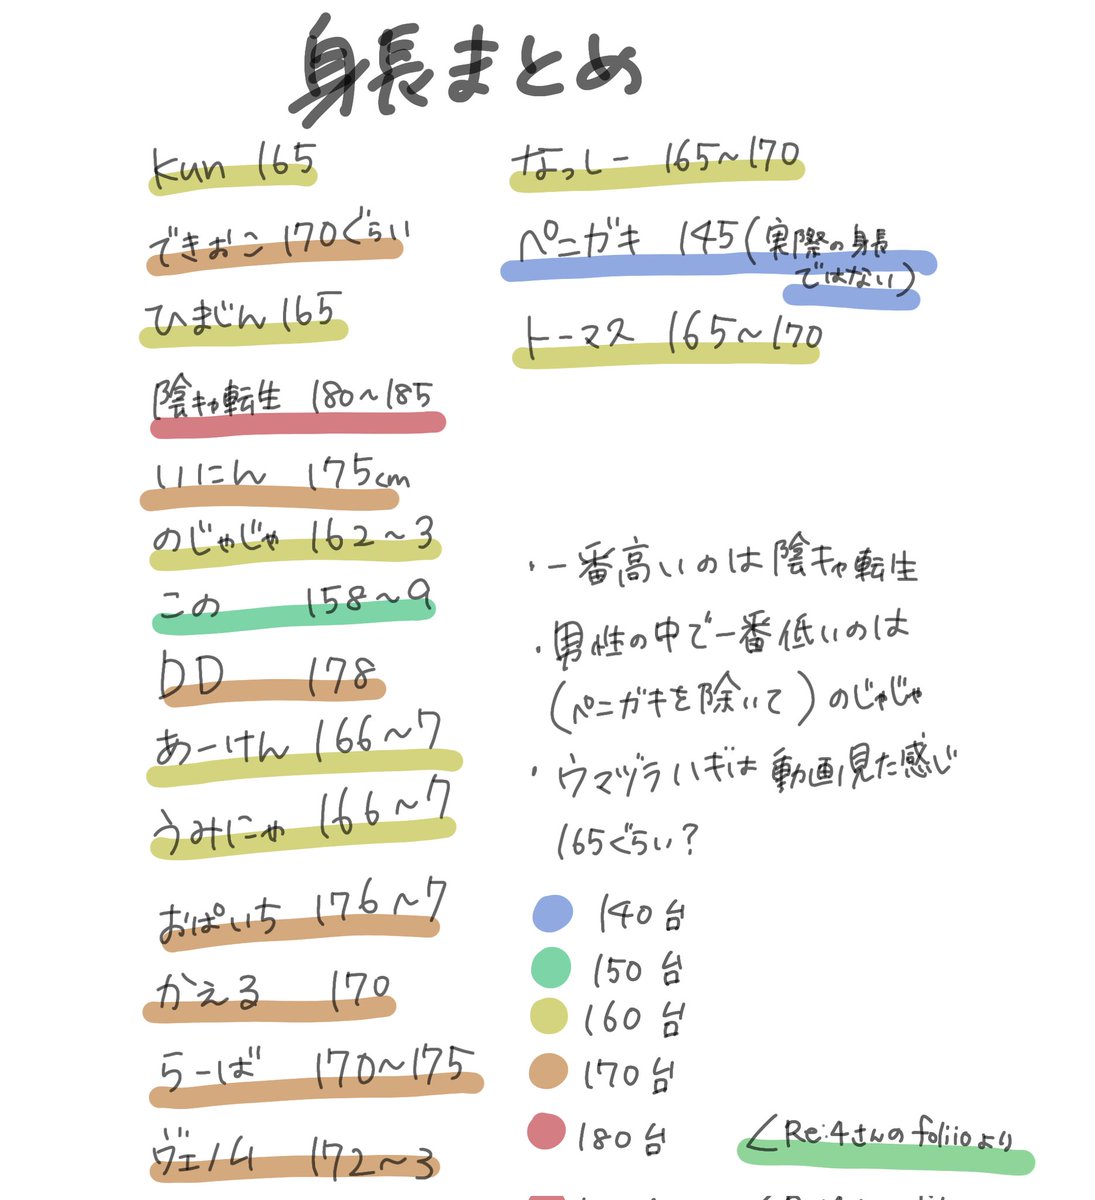 身長まとめ
Kun 165
できおこ 170ぐらい
ひまじん 165
陰キャ転生 180~185
いにん 175cm
のじゃじゃ 162~3
この 158~9
DD 178
あーけん 166~7
うみにゃ 166~7
おぱいち 176~7
かえる 170
らーば 170~175
ヴェノム 172~3
なっしー 165~170
ペニガキ 145(実際の身長
ではない)
トーマス 165~170
・一番高いのは陰キャ転生
・男性の中で一番低いのは
(ペニガキを除いて)のじゃじゃ
・ウマヅラハギは動画見た感じ
165ぐらい?
140台
150台
160台
170台
180台
Re:4さんのfoliioより